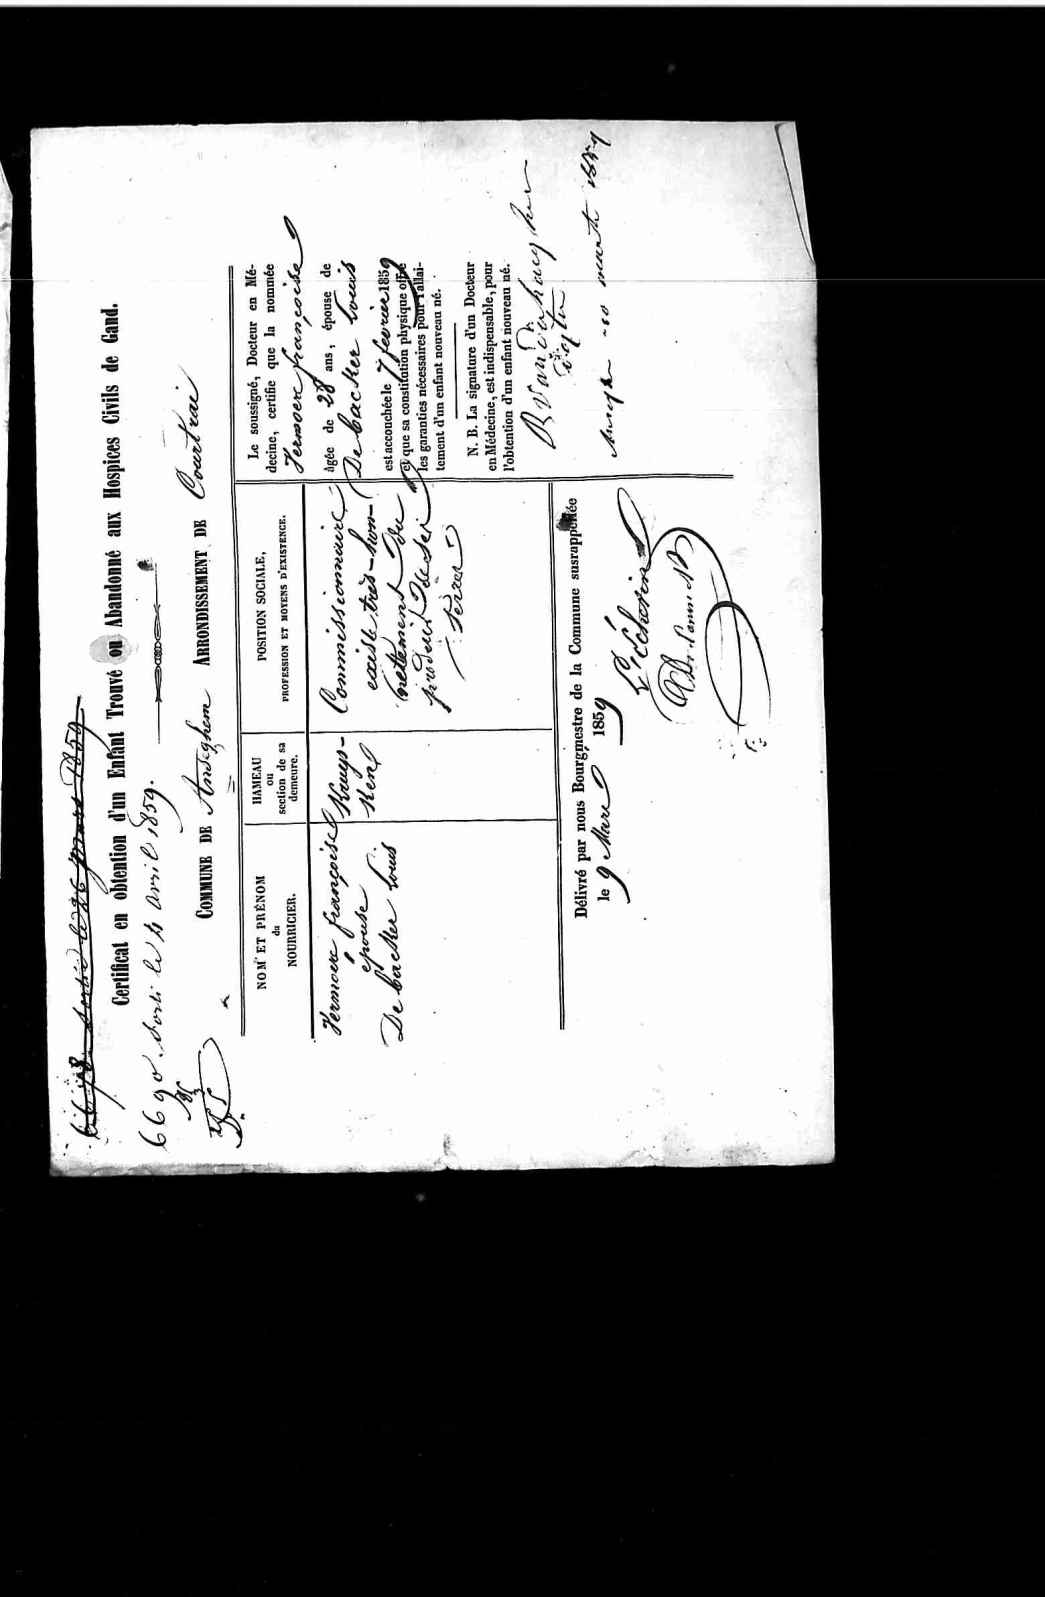 sortie le 26 mars 1859
Certificat en obtention d'un Enfant Trouvé ou Abandonné aux Hospices Civils de Gand.
6690. Sorti le 4 avril 1859.
COMMUNE DE Anseghem ARRONDISSEMENT DE Courtrai
NOM ET PRÉNOM
du
NOURRICIER.
Vermoere françoise
épouse
De backer louis
HAMEAU
ou
section de sa
demeure.
Kruys-
Ken
POSITION SOCIALE,
PROFESSION ET MOYENS D'EXISTENCE.
Commissionnaire
existe très-hon-
netement du
produit de ses
Le soussigné, Docteur en Mé-
decine, certifie que la nommée
Vermoere françoise
âgée de 28 ans, épouse de
De backer louis
est accouchée le 7 fevrier 1859
et que sa constitution physique offre
les garanties nécessaires pour l'allai-
tement d'un enfant nouveau né.
N. B. La signature d'un Docteur
en Médecine, est indispensable, pour
l'obtention d'un enfant nouveau né.
Délivré par nous Bourgmestre de la Commune susrapportée
le 9 Mars 1859
L'échevin